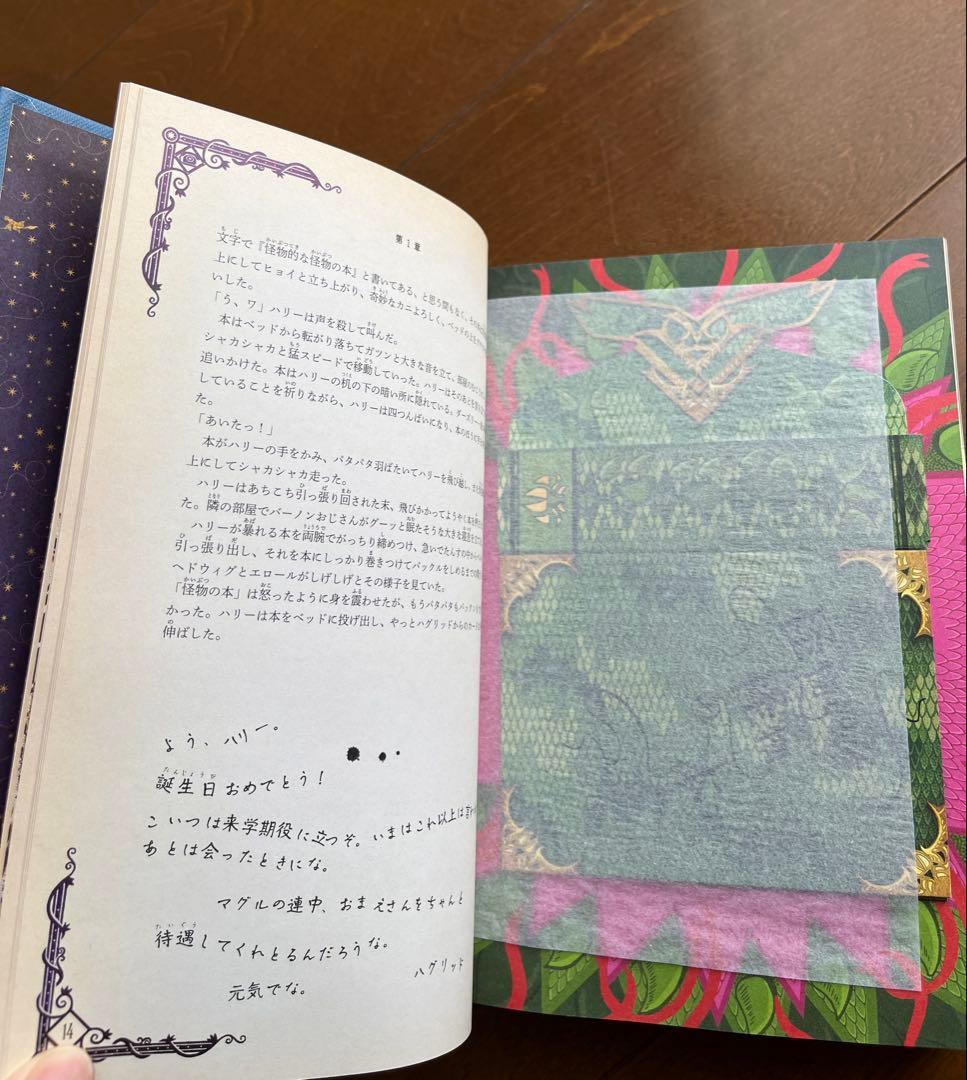 第1章
文字で『怪物的な怪物の本』と書いてある、と思う間もなく、
上にしてヒョイと立ち上がり、奇妙なカニよろしく、ベッドの上を
いした。
「う、ワ」ハリーは声を殺して叫んだ。
本はベッドから転がり落ちてガツンと大きな音を立て、部屋の
シャカシャカと猛スピードで移動していった。ハリーはそのあとを
追いかけた。本はハリーの机の下の暗い所に隠れている。ダーズリー
していることを祈りながら、ハリーは四つんばいになり、本のほうに手を
た。
「あいたっ！」
本がハリーの手をかみ、パタパタ羽ばたいてハリーを飛び越し、また
上にしてシャカシャカ走った。
ハリーはあちこち引っ張り回された末、飛びかかってようやく本を
た。隣の部屋でバーノンおじさんがグーッと眠たそうな大きな寝息を立て
ハリーが暴れる本を両腕でがっちり締めつけ、急いでたんすの中から
引っ張り出し、それを本にしっかり巻きつけてバックルをしめるまでの
ヘドウィグとエロールがしげしげとその様子を見ていた。
「怪物の本」は怒ったように身を震わせたが、もうパタパタもパックン
かった。ハリーは本をベッドに投げ出し、やっとハグリッドからのカード
伸ばした。
よう、ハリー。
誕生日おめでとう！
こいつは来学期役に立つぞ。いまはこれ以上は言
あとは会ったときにな。
マグルの連中、おまえさんをちゃんと
待遇してくれとるんだろうな。
元気でな。
ハグリッド
14